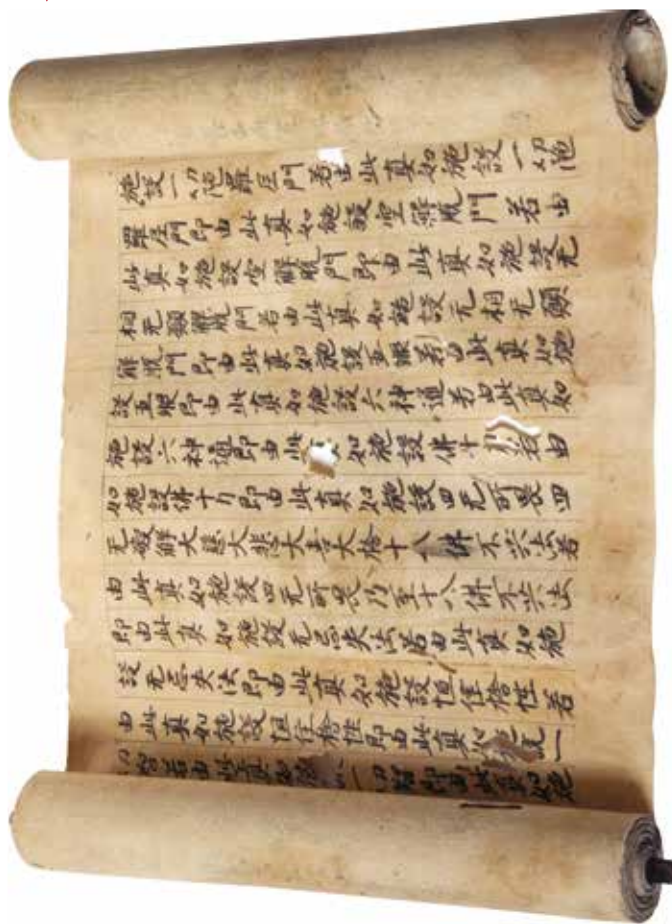 施設一切陁羅尼門若由此真如施設一切陁
羅尼門即由此真如施設空解脫門若由
此真如施設空解脫門即由此真如施設无
相无願解脫門若由此真如施設无相无願
解脫門即由此真如施設五眼若由此真如施
設五眼即由此真如施設六神通若由此真如
施設六神通即由此如施設佛十若由
如施設佛十力即由此真如施設四无所畏四
无礙解大慈大悲大喜大捨十八佛不共法若
由此真如施設四无所畏乃至十八佛不共法
即由此真如施設无忘失法若由此真如施
設无忘失法即由此真如施設恒住捨性若
由此真如施設恒住捨性即由此真如施設一
切智若由此真如施設一切智即由此真如施